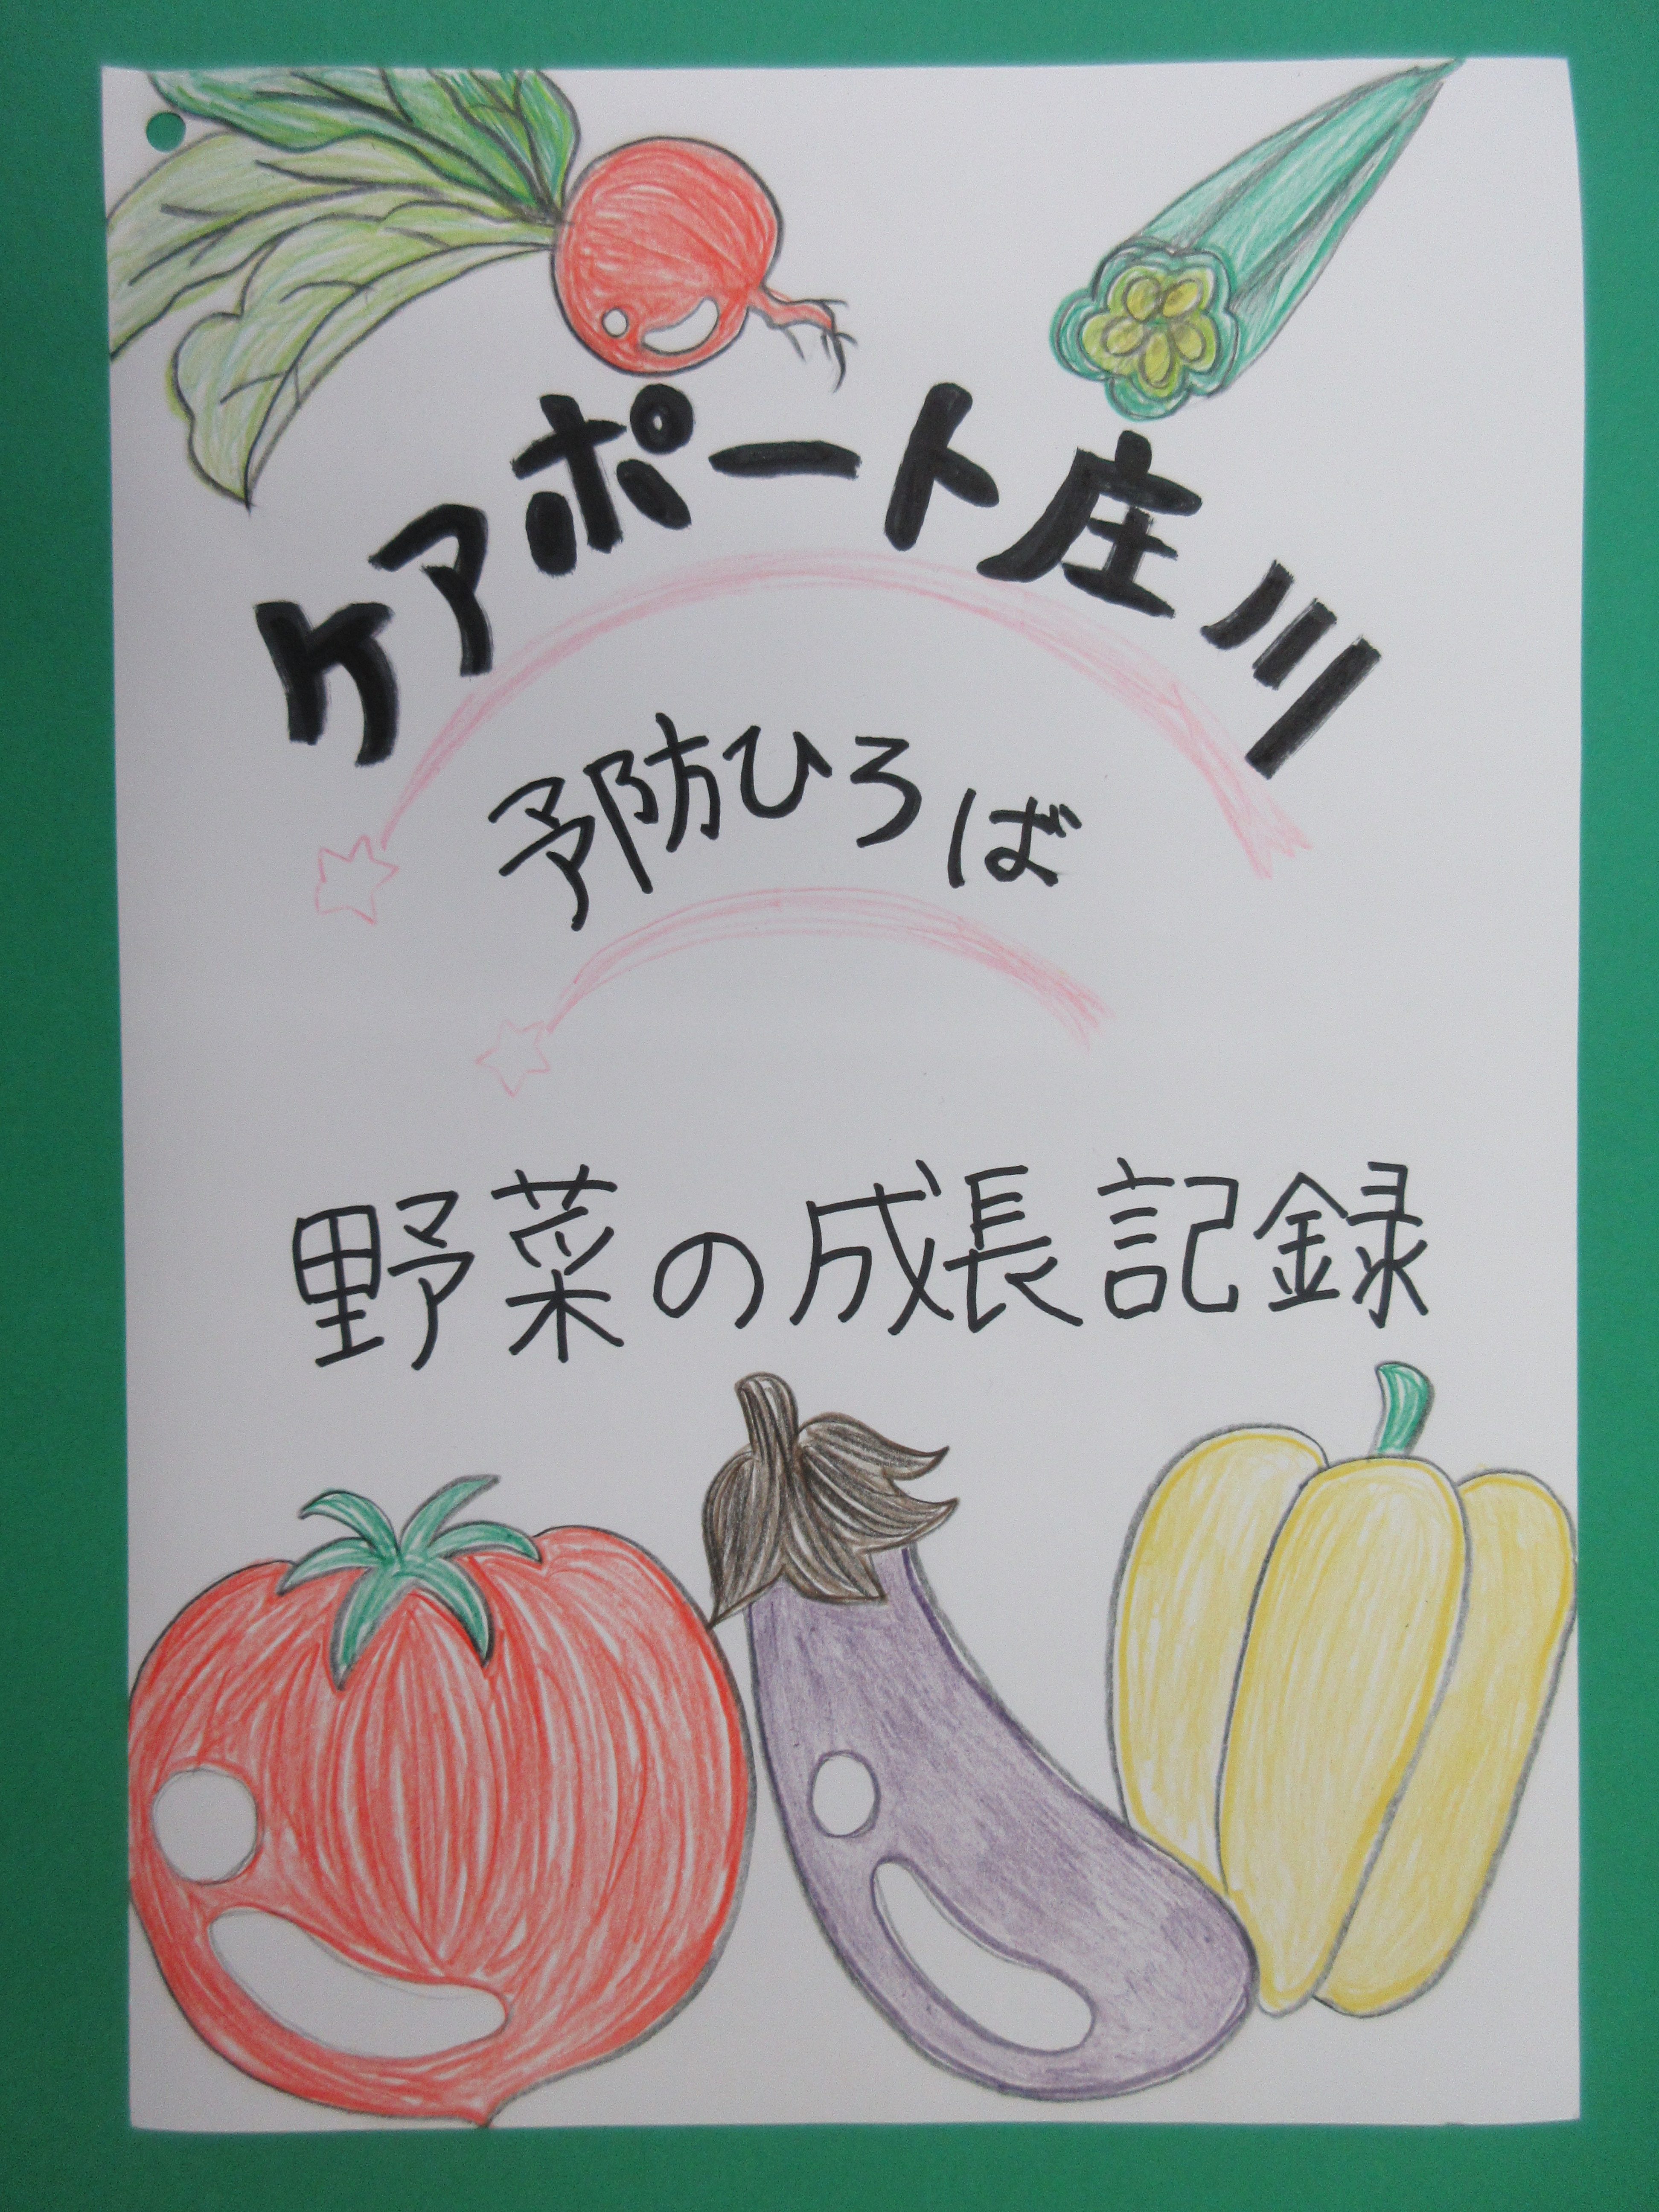 ケアポート庄川
予防ひろば
野菜の成長記録